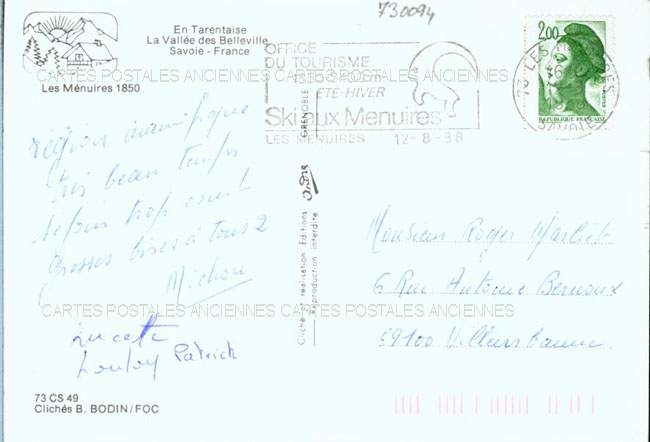 730094
En Tarentaise
La Vallée des Belleville
Savoie - France
Les Ménuires 1850
2,00
Postes
REPUBLIQUE FRANÇAISE
73 LES
SAVOIE
OFFICE
DU TOURISME
1850-2880m
ÉTÉ-HIVER
Ski aux Menuires
LES MENUIRES 12-8-88
CARTES POSTALES ANCIENNES CARTES POSTALES ANCIENNES
région magnifique
très beau temps
séjour trop court
grosses bises à tous 2
Michou
Lucette
Loulou Patrick
GRENOBLE
Cliché et réalisation Editions André
Reproduction interdite
Monsieur Roger Marliet
6 Rue Antoine Bernoux
69100 Villeurbanne
CARTES POSTALES ANCIENNES CARTES POSTALES ANCIENNES
73 CS 49
Clichés B. BODIN/FOC